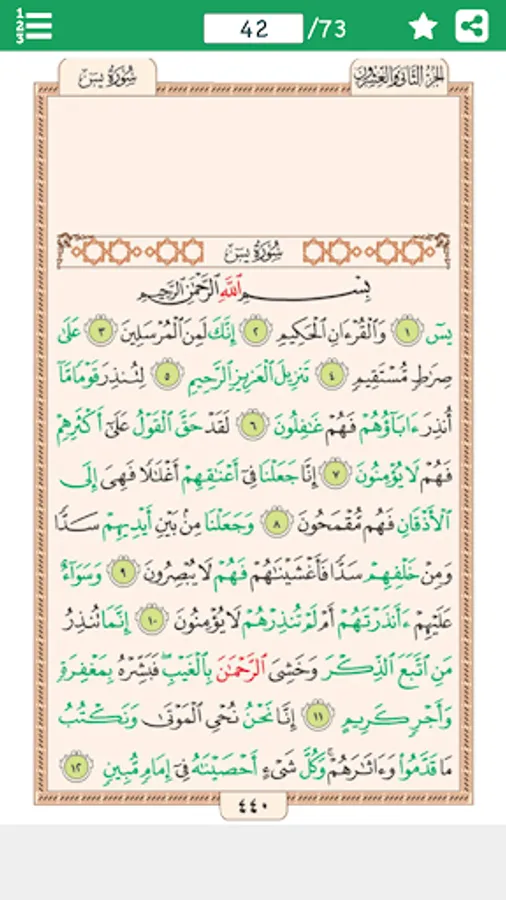 1
2
3
42 /73
سُورَةُ يسٓ الجُزْءُ الثَّانِي وَالْعِشْرُونَ
سُورَةُ يسٓ
بِسْمِ ٱللَّهِ ٱلرَّحْمَٰنِ ٱلرَّحِيمِ
يسٓ ١ وَٱلْقُرْءَانِ ٱلْحَكِيمِ ٢ إِنَّكَ لَمِنَ ٱلْمُرْسَلِينَ ٣ عَلَىٰ
صِرَٰطٍ مُّسْتَقِيمٍ ٤ تَنزِيلَ ٱلْعَزِيزِ ٱلرَّحِيمِ ٥ لِتُنذِرَ قَوْمًا مَّآ
أُنذِرَ ءَابَآؤُهُمْ فَهُمْ غَٰفِلُونَ ٦ لَقَدْ حَقَّ ٱلْقَوْلُ عَلَىٰٓ أَكْثَرِهِمْ
فَهُمْ لَا يُؤْمِنُونَ ٧ إِنَّا جَعَلْنَا فِىٓ أَعْنَٰقِهِمْ أَغْلَٰلًا فَهِىَ إِلَى
ٱلْأَذْقَانِ فَهُم مُّقْمَحُونَ ٨ وَجَعَلْنَا مِنۢ بَيْنِ أَيْدِيهِمْ سَدًّا
وَمِنْ خَلْفِهِمْ سَدًّا فَأَغْشَيْنَٰهُمْ فَهُمْ لَا يُبْصِرُونَ ٩ وَسَوَآءٌ
عَلَيْهِمْ ءَأَنذَرْتَهُمْ أَمْ لَمْ تُنذِرْهُمْ لَا يُؤْمِنُونَ ١٠ إِنَّمَا تُنذِرُ
مَنِ ٱتَّبَعَ ٱلذِّكْرَ وَخَشِىَ ٱلرَّحْمَٰنَ بِٱلْغَيْبِ ۖ فَبَشِّرْهُ بِمَغْفِرَةٍ
وَأَجْرٍ كَرِيمٍ ١١ إِنَّا نَحْنُ نُحْىِ ٱلْمَوْتَىٰ وَنَكْتُبُ
مَا قَدَّمُوا۟ وَءَاثَٰرَهُمْ ۚ وَكُلَّ شَىْءٍ أَحْصَيْنَٰهُ فِىٓ إِمَامٍ مُّبِينٍ ١٢
٤٤٠